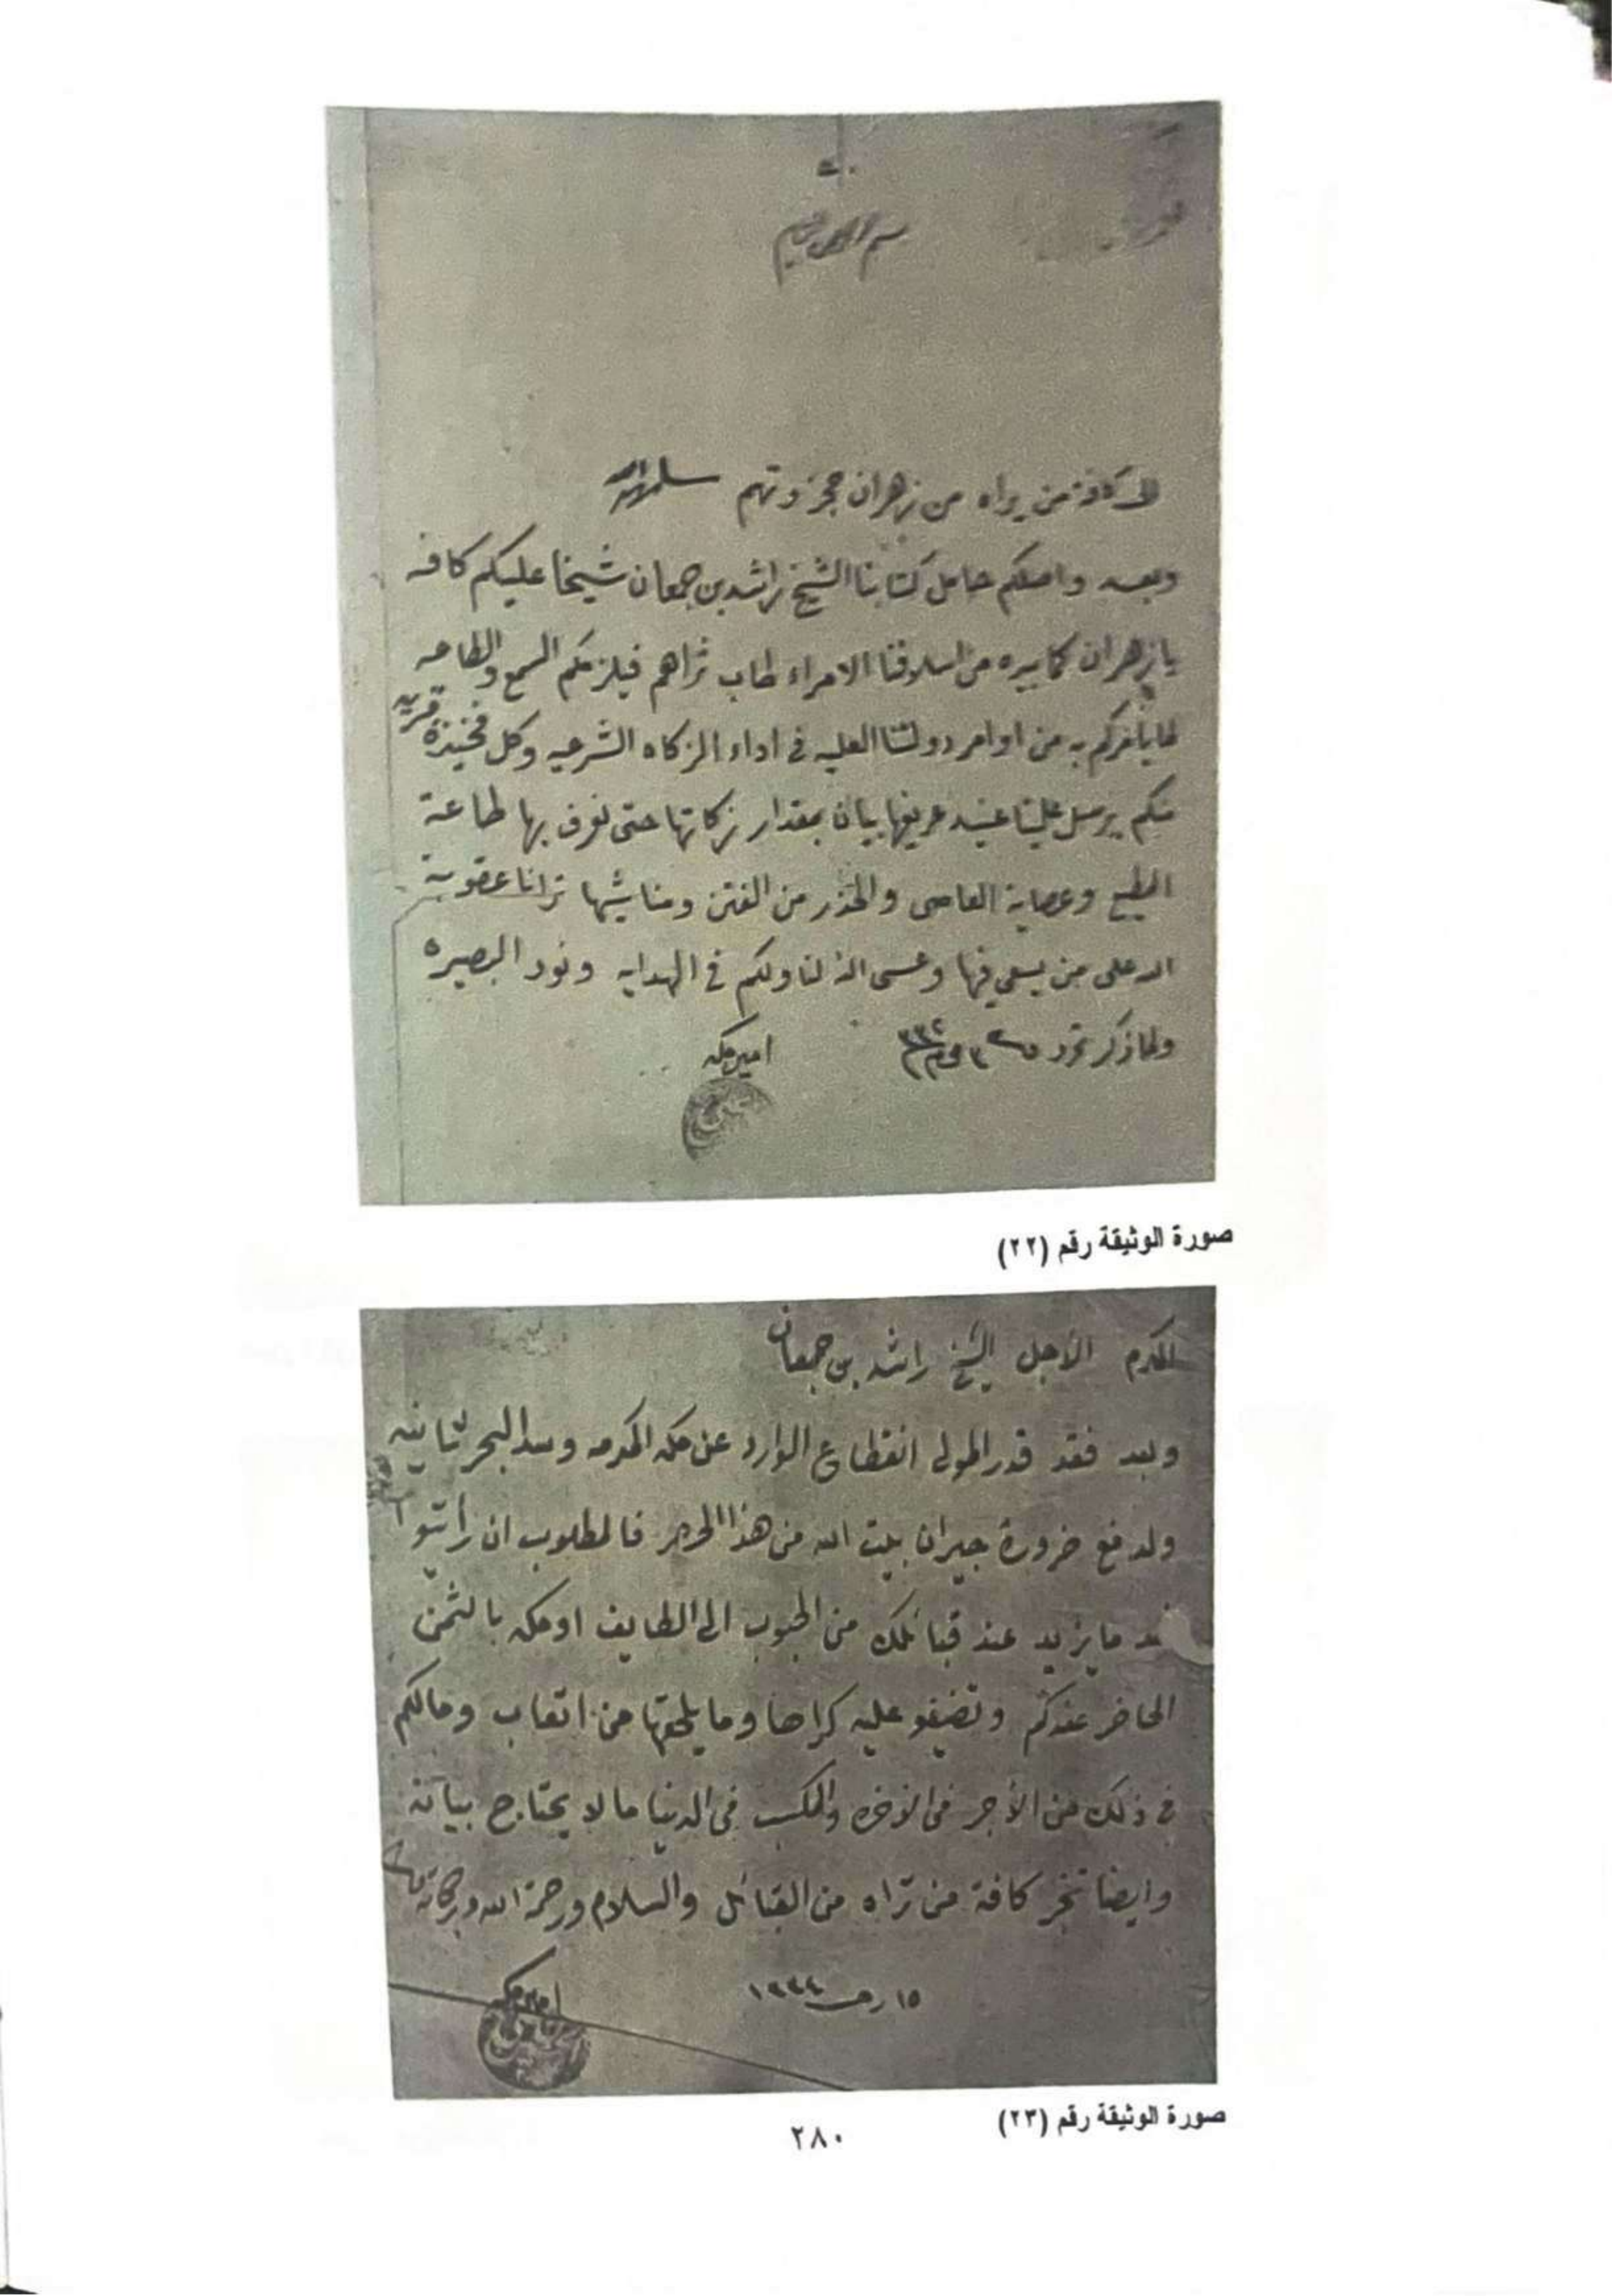 بسم الله الرحمن الرحيم
الى كافة من يراه من زهران حجز وتهم سلمهم الله
وبعد واصلكم حامل كتابنا الشيخ راشد بن جمعان شيخا عليكم كافه
يا زهران كما بيده من اسلافنا الامراء طاب ثراهم فيلزمكم السمع والطاعه
لما يأمركم به من اوامر دولتنا العليه في اداء الزكاه الشرعيه وكل فخيذة قريه
منكم يرسل علينا عريفها بيان بمقدار زكاتها حتى نعرف بها طاعة
المطيع وعصاية العاصي والحذر من الفتن ومناشيها ترانا عقوبة
الله على من يسعى فيها وعسى الله لنا ولكم في الهدايه ونور البصيره
ولما ذكر تحرر محرم ٣٣٢
امير مكه
صورة الوثيقة رقم (٢٢)
المكرم الأجل الشيخ راشد بن جمعان
وبعد فقد قدر المولى انقطاع الوارد عن مكه المكرمه وسد البحر
ولدفع ضرورة جيران بيت الله من هذا الحرم فالمطلوب ان رأيتوا
ما يزيد عند قبائلك من الحبوب الى الطايف او مكه بالثمن
الحاضر عندكم وتضيفو عليه كراها وما يلحقها من اتعاب ومالكم
في ذلك من الأجر في الاخره والمكسب في الدنيا ما لا يحتاج بيانه
وايضا تخبر كافة من تراه من القبائل والسلام ورحمة الله وبركاته
١٥ ١٣٣٤
امير مكه
صورة الوثيقة رقم (٢٣)
٢٨٠